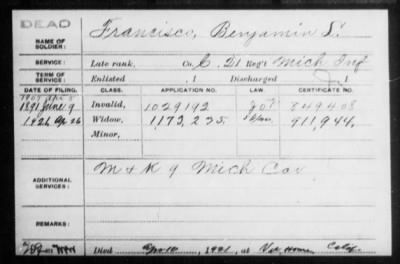 DEAD
NAME OF SOLDIER: Francisco, Benjamin S.
SERVICE: Late rank, Co. C. 21 Reg't Mich Inf
TERM OF SERVICE: Enlisted , 1 Discharged , 1
DATE OF FILING. CLASS. APPLICATION NO. LAW. CERTIFICATE NO.
1891 June 9 Invalid, 1029192 849408
Widow, 1173,235 911,944
Minor,
ADDITIONAL SERVICES: M & K 9 Mich Cav
REMARKS:
Died Apr 10, 1921, at Nat Home, Calif.